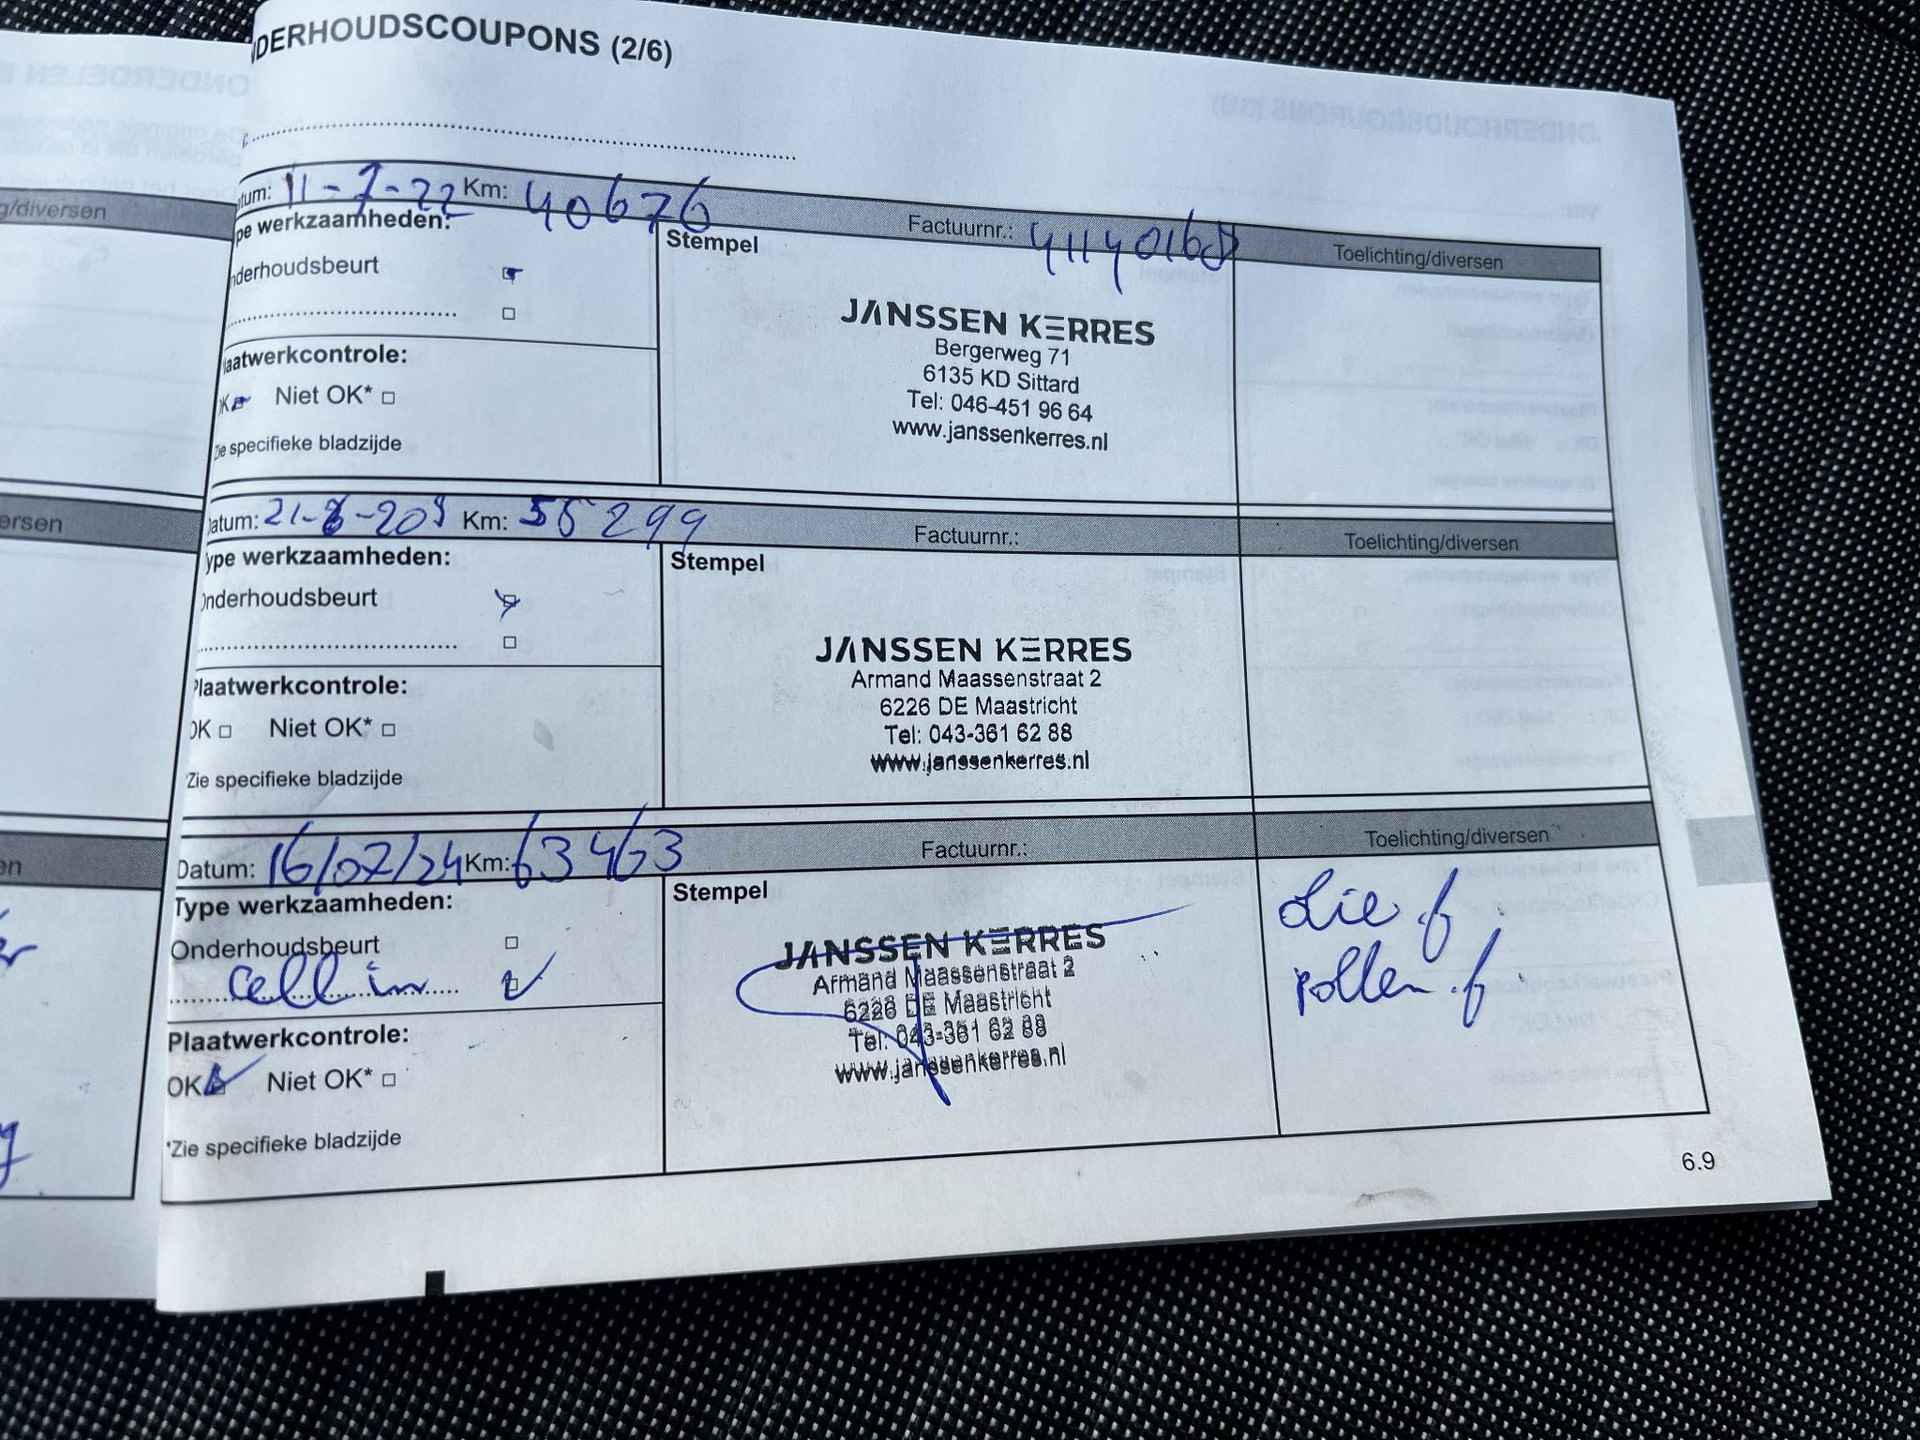 NDERHOUDSCOUPONS (2/6)
tum: 11-7-22 Km: 40676 Factuurnr.: Toelichting/diversen
pe werkzaamheden: Stempel
nderhoudsbeurt
JANSSEN KERRES
Bergerweg 71
6135 KD Sittard
Tel: 046-451 96 64
www.janssenkerres.nl
laatwerkcontrole:
OK Niet OK*
Zie specifieke bladzijde
Datum: Km: 55299 Factuurnr.: Toelichting/diversen
Type werkzaamheden: Stempel
Onderhoudsbeurt
JANSSEN KERRES
Armand Maassenstraat 2
6226 DE Maastricht
Tel: 043-361 62 88
www.janssenkerres.nl
Plaatwerkcontrole:
OK Niet OK*
*Zie specifieke bladzijde
Datum: 16/07/24 Km: 63463 Factuurnr.: Toelichting/diversen
Type werkzaamheden: Stempel
Onderhoudsbeurt
JANSSEN KERRES
Armand Maassenstraat 2
6226 DE Maastricht
Tel: 043-361 62 88
www.janssenkerres.nl
pollen.f
Plaatwerkcontrole:
OK Niet OK*
*Zie specifieke bladzijde
6.9
g/diversen
ersen
en